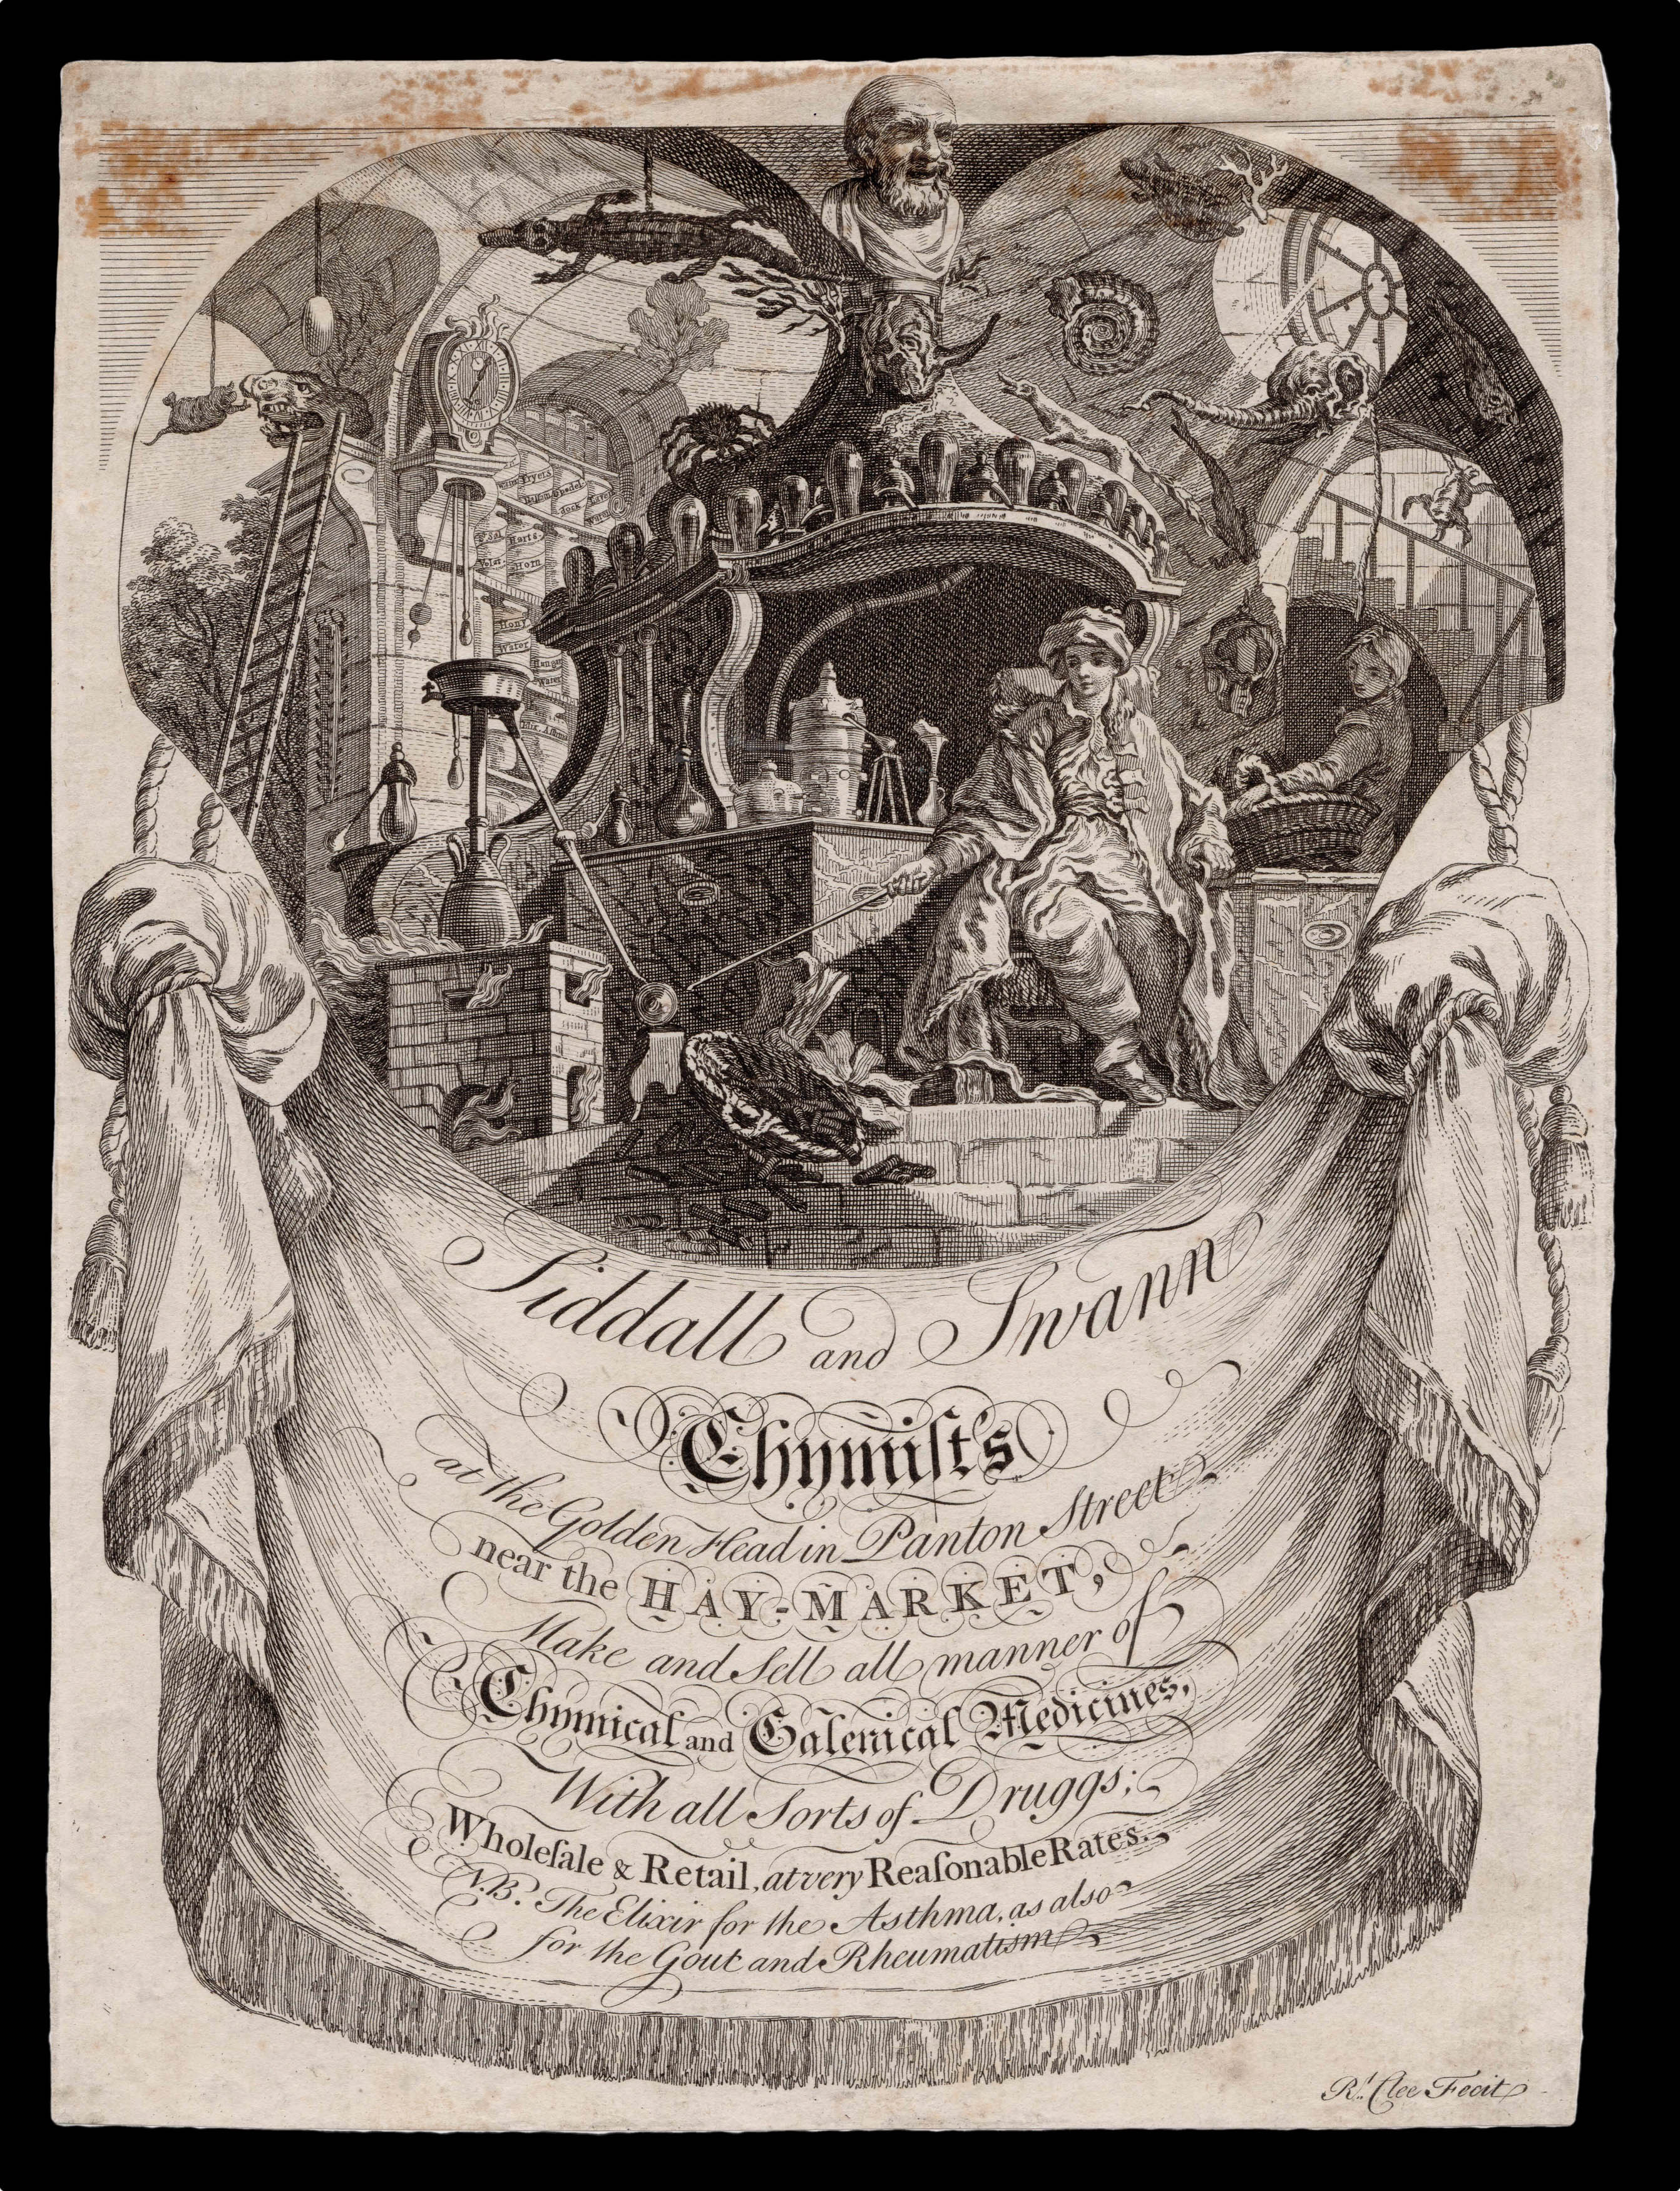 Harts
Horn
Hony
Water
Hungar
Water
Siddall and Swann
Chymiſt's
at the Golden Head in Panton Street
near the HAY-MARKET,
Make and Sell all manner of
Chymical and Galenical Medicines,
With all Sorts of Druggs;
Wholeſale & Retail, at very Reaſonable Rates.
N.B. The Elixir for the Asthma, as also
for the Gout and Rheumatism
R.d Clee Fecit